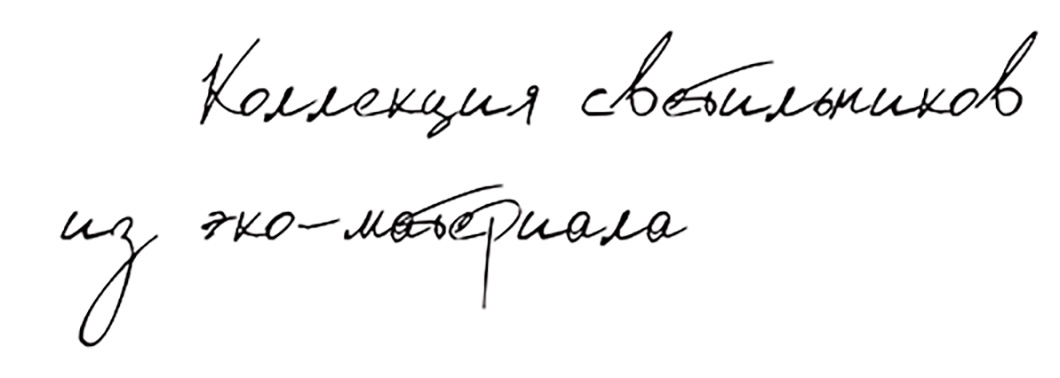 Коллекция светильников
из эко-материала